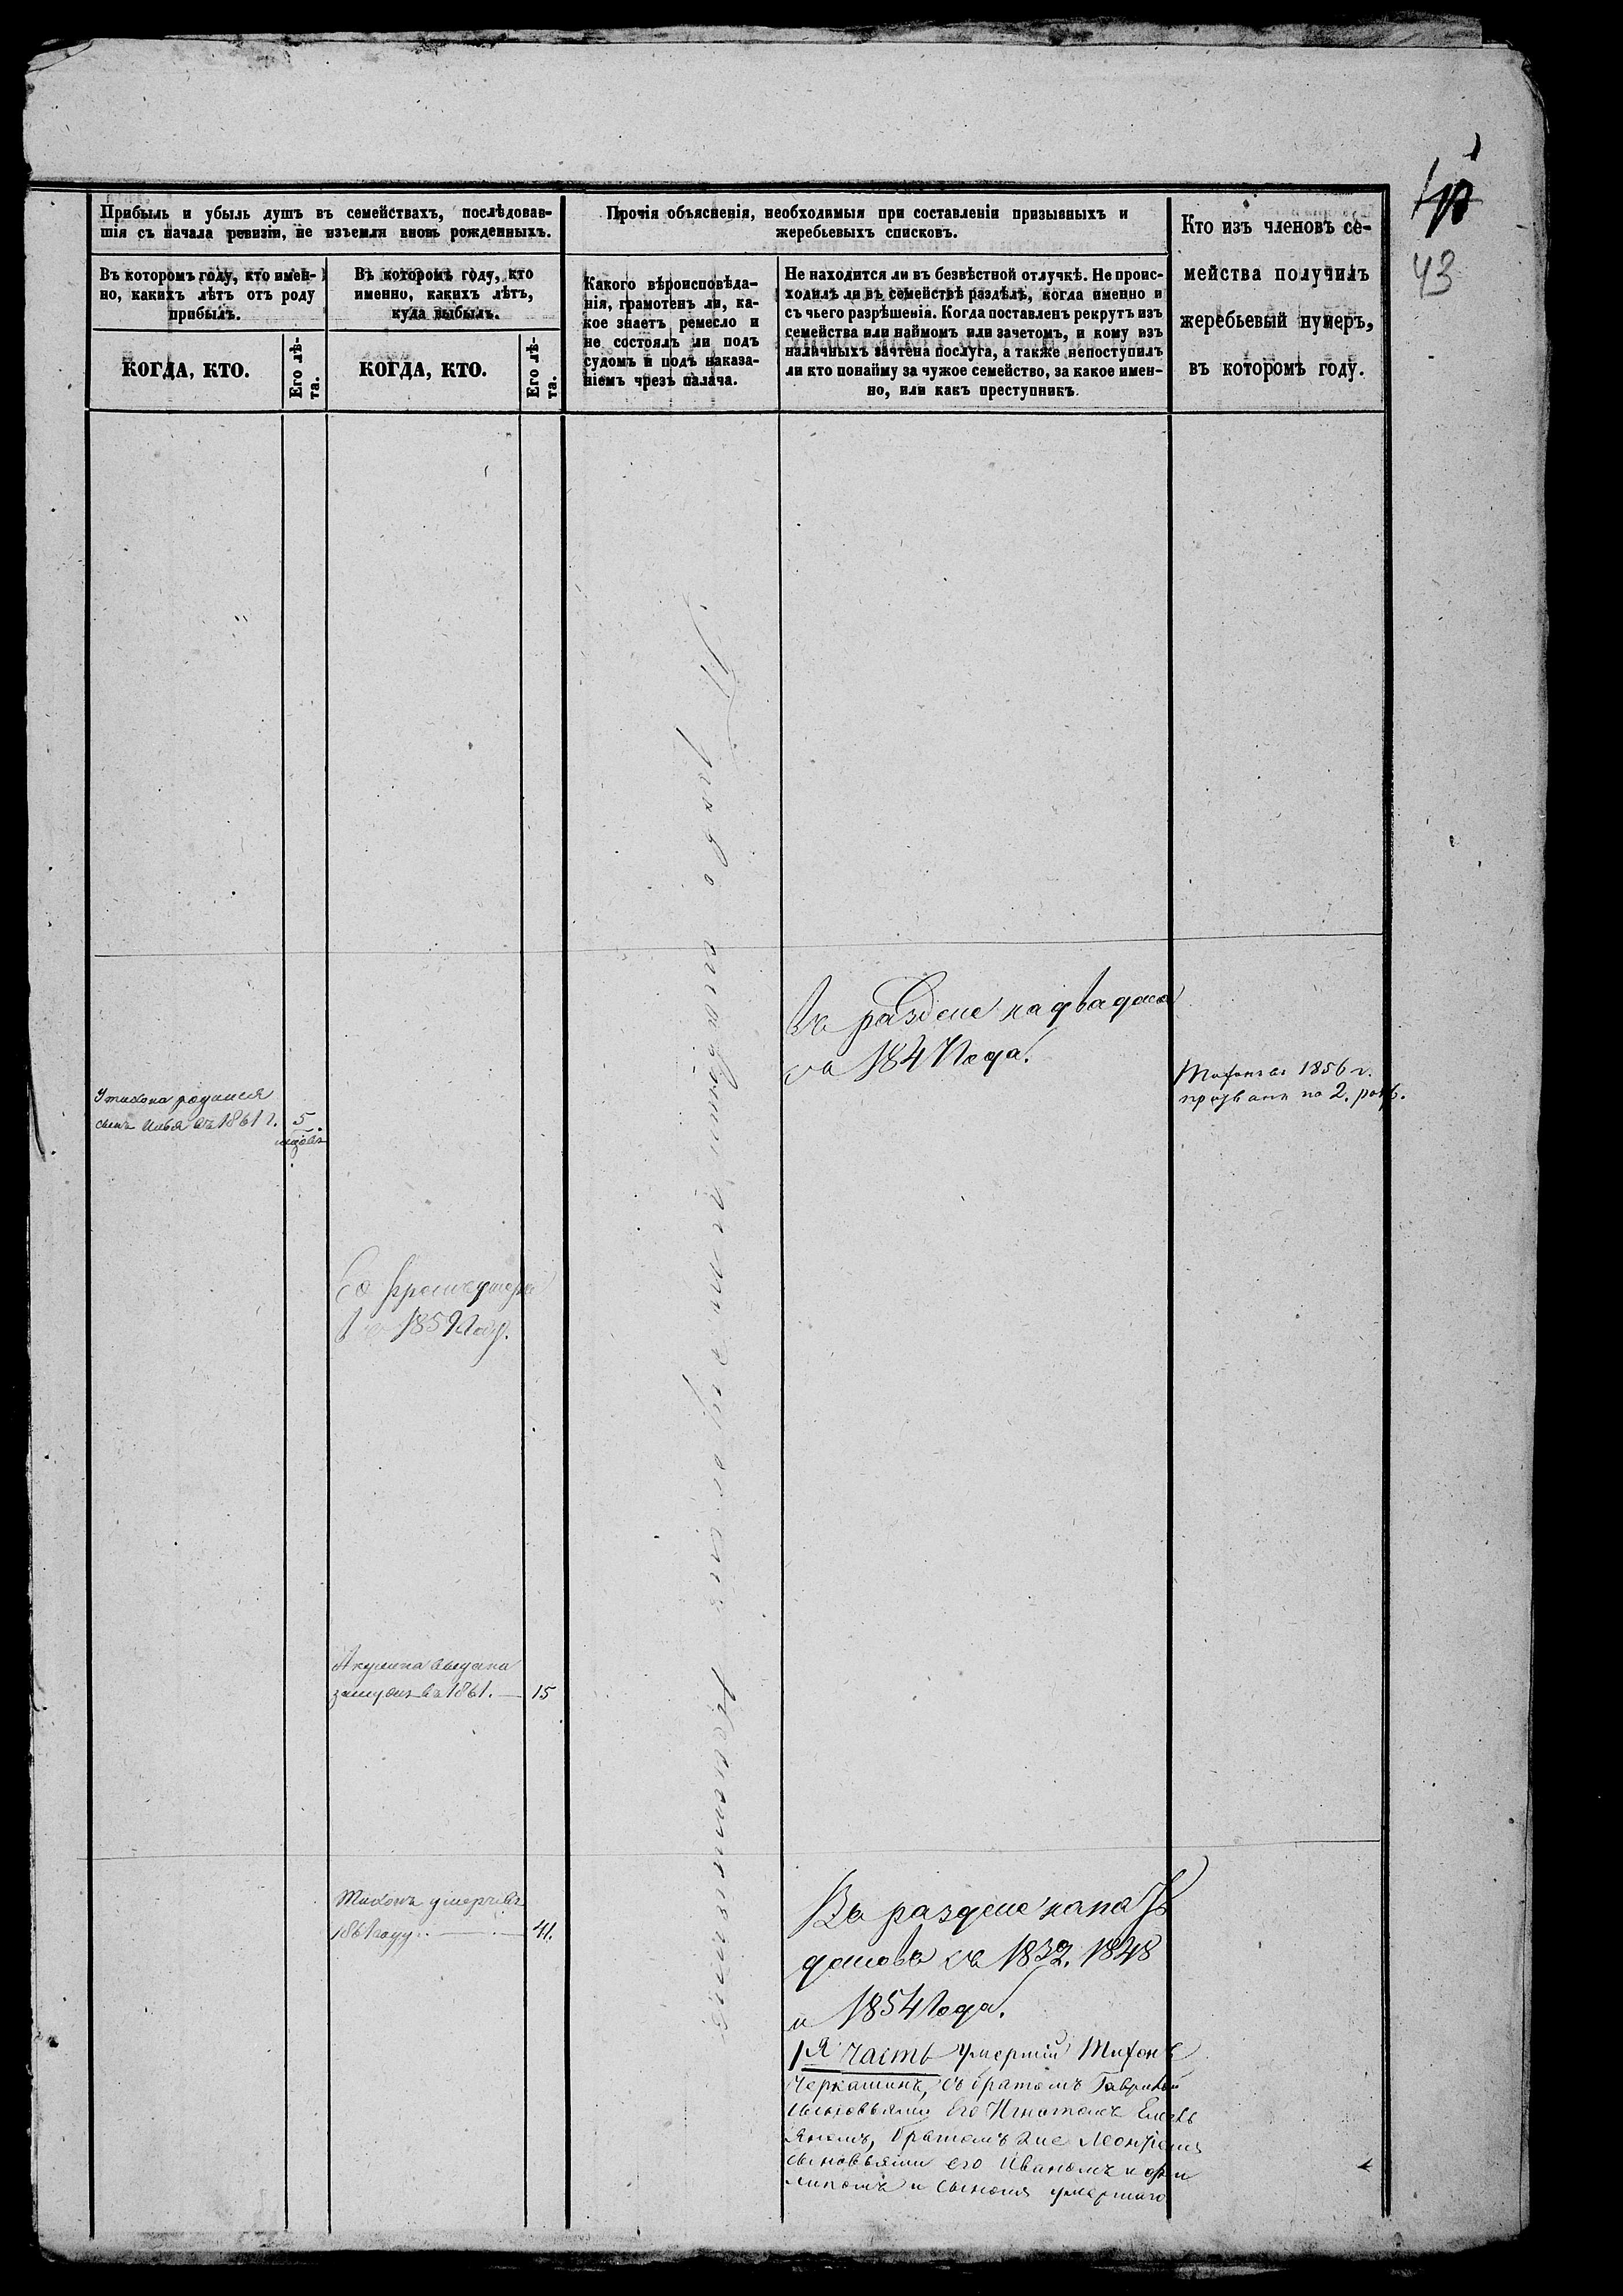 43
Прибыль и убыль душъ въ семействахъ, послѣдовав-
шія съ начала ревизіи, не изъемля вновь рожденныхъ.
Въ которомъ году, кто имен-
но, какихъ лѣтъ отъ роду
прибылъ.
КОГДА, КТО.
Его лѣ-
та.
Въ которомъ году, кто
именно, какихъ лѣтъ,
куда выбылъ.
КОГДА, КТО.
Его лѣ-
та.
Прочія объясненія, необходимыя при составленіи призывныхъ и
жеребьевыхъ списковъ.
Какого вѣроисповѣда-
нія, грамотенъ ли, ка-
кое знаетъ ремесло и
не состоялъ ли подъ
судомъ и подъ наказа-
ніемъ чрезъ палача.
Не находится ли въ безвѣстной отлучкѣ. Не проис-
ходилъ ли въ семействѣ раздѣлъ, когда именно и
съ чьего разрѣшенія. Когда поставленъ рекрутъ изъ
семейства или наймомъ или зачетомъ, и кому изъ
наличныхъ зачтена послуга, а также непоступилъ
ли кто понайму за чужое семейство, за какое имен-
но, или какъ преступникъ.
Кто изъ членовъ се-
мейства получилъ
жеребьевый нумеръ,
въ которомъ году.
Въ разделе на два дома
съ 1847 года.
Тихонъ въ 1856 г.
призванъ по 2.
У тихона родился
сынъ Илья въ 1861 г. 5
въ 1859 году.
Акулина выдана
замужъ въ 1861. — 15
Тихонъ умеръ въ
1861 году. — 41.
Въ разделе на пать
домовъ съ 1832. 1848
и 1854 года.
1я часть умершій Тихонъ
Черкашинъ, съ братомъ Гаврилой
сыновьями его Игнатомъ Емель
яномъ, братомъ же Леонтіемъ
сыновьями его Иваномъ и Фи
липомъ и сыномъ умершаго